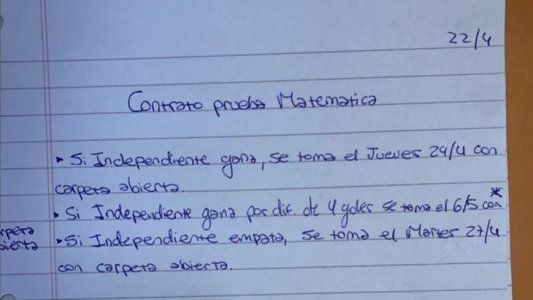 22/4
Contrato prueba Matematica
▸ Si Independiente gana, se toma el Jueves 29/4 con
carpeta abierta.
▸ Si Independiente gana por dif. de 4 goles se toma el 6/5 con*
▸ Si Independiente empata, se toma el Martes 27/4
con carpeta abierta.
rpeta
bierta